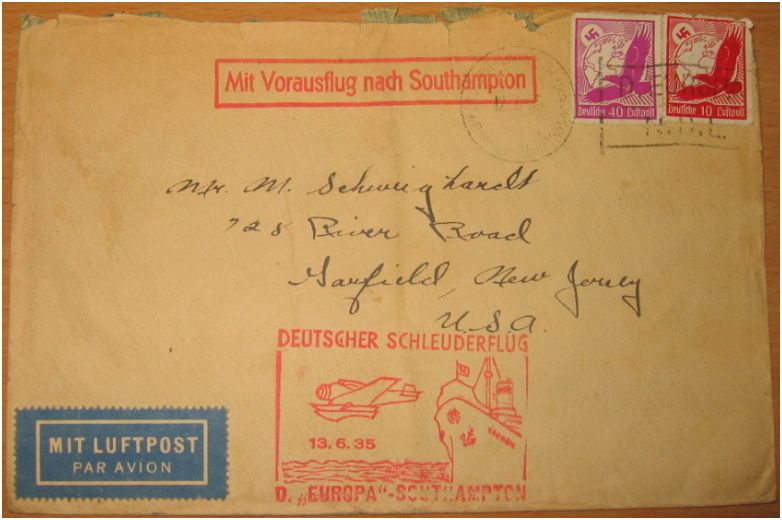 Mit Vorausflug nach Southampton
Deutsche 40 Luftpost
Deutsche 10 Luftpost
Mr. M. Schweighardt
728 River Road
Garfield, New Jersey
U.S.A.
DEUTSCHER SCHLEUDERFLUG
13.6.35
D. „EUROPA“-SOUTHAMPTON
MIT LUFTPOST
PAR AVION